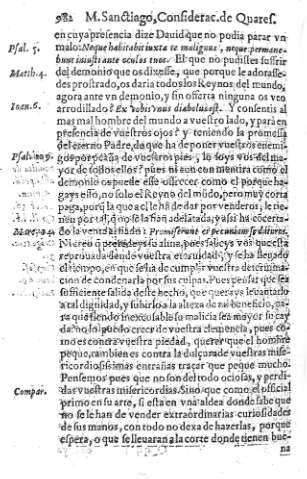 982 M. Sanctiago, Considerac. de Quares.
en cuya presencia dize Dauid que no podia parar vn
Psal. 5. malo: Neque habitabit iuxta te malignus, neque permane-
bunt iniusti ante oculos tuos. El que no pudistes sufrir
Matth. 4. del demonio que os dixesse, que porque le adorasse-
des prostrado, os daria todos los Reynos del mundo,
agora ante vn demonio, y sin offerta ninguna os veo
Ioan. 6. arrodillado? Ex vobis vnus diabolus est. Y consentis al
mas mal hombre del mundo a vuestro lado, y pará en
presencia de vuestros ojos? y teniendo la promessa
del eterno Padre, de que ha de poner vuestros enemi-
Psal. 109. gos por peaña de vuestros pies, lo soys vos del ma-
yor de todos ellos? pues ni aun con mentira como el
demonio os puede este offrecer como el porque ha-
gays esso, no solo el Reyno del mũdo, pero muy corta
paga, porq̃ la que el le hã de dar por venderos, le tie-
la venta
Promiserunt ei pecuniam se daturos.
reprouada vuestra y se ha llegado
el tiempo, en que se ha de cumplir vuestra determina-
cion de condenarla por sus culpas. Pues pensar que sea
sufficiente salida deste hecho, que quereys leuantarlo
a tal dignidad, y subirlo a la alteza de beneficio, pa-
ra quitiendo inexcusable su malicia sea mayor su cay
da: no lo puedo creer de vuestra clemencia, pues co-
mo es contra vuestra piedad, querer que el hombre
peque, tambien es contra la dulçura de vuestras mise-
ricordiosissimas entrañas traçar que peque mucho.
Pensemos pues que no son del todo ociosas, y perdi-
Compar. das vuestras misericordias. Sino que como el official
primo en su arte, si esta en vna aldea donde sabe que
no se le han de vender extraordinarias curiosidades
de sus manos, con todo no dexa de hazerlas, porque
espera, o que se lleuaran a la corte donde tienen bue-
na